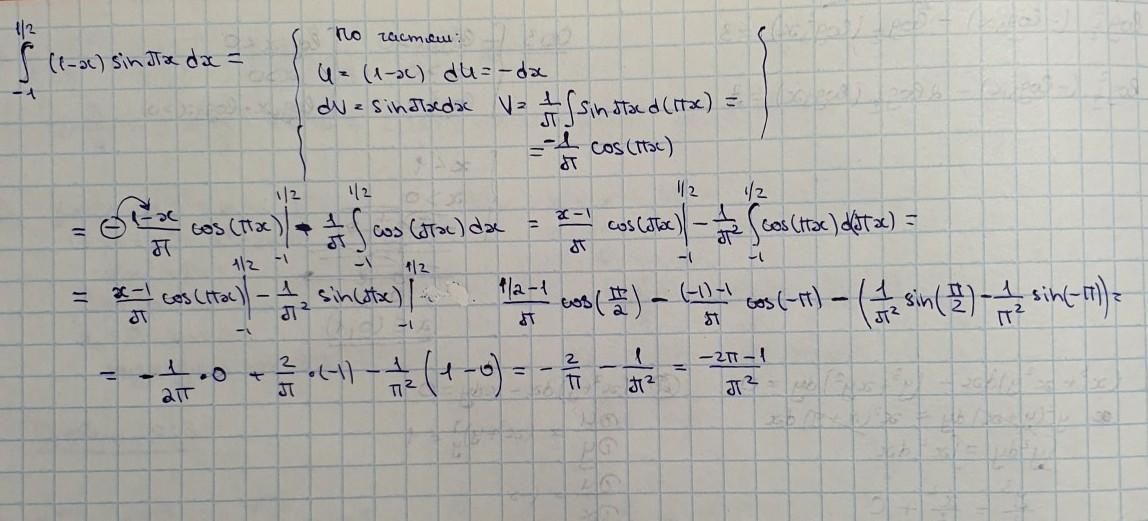 ∫_{-1}^{1/2} (1-x) sin πx dx = { по частям:
U = (1-x) dU = -dx
dV = sin πx dx V = 1/π ∫ sin πx d(πx) =
= -1/π cos(πx) }
= - (1-x)/π cos(πx) |_{-1}^{1/2} - 1/π ∫_{-1}^{1/2} cos(πx) dx = (x-1)/π cos(πx) |_{-1}^{1/2} - 1/π² ∫_{-1}^{1/2} cos(πx) d(πx) =
= (x-1)/π cos(πx) |_{-1}^{1/2} - 1/π² sin(πx) |_{-1}^{1/2} (1/2-1)/π cos(π/2) - ((-1)-1)/π cos(-π) - (1/π² sin(π/2) - 1/π² sin(-π)) =
= - 1/2π · 0 + 2/π · (-1) - 1/π² (1-0) = - 2/π - 1/π² = (-2π-1)/π²